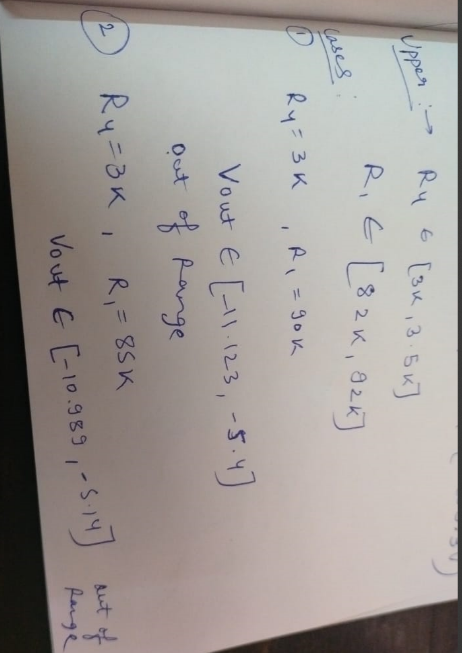 Upper :→ R4 ∈ [3K, 3.5K]
R1 ∈ [82K, 92K]
Cases :
① R4 = 3K , R1 = 90K
Vout ∈ [-11.123, -5.4]
Out of Range
② R4 = 3K , R1 = 85K
Vout ∈ [-10.989, -5.14] out of Range